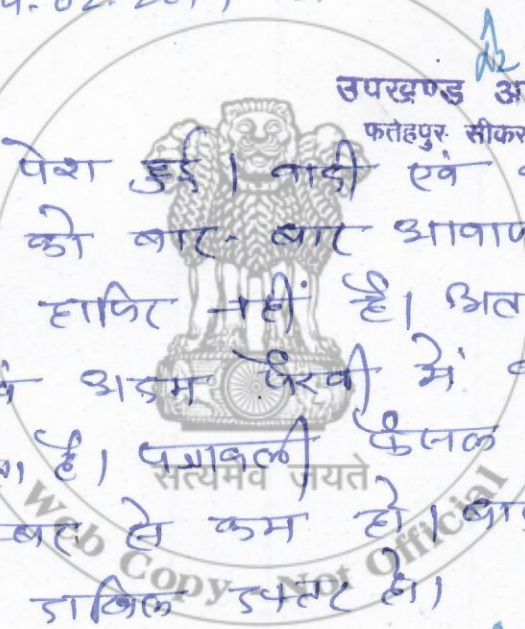 उपखण्ड अ
फतेहपुर सीकर
पेश हुई। वादी एवं व
को बार-बार आवाज
हाजिर नहीं है। अत
अदम पैरवी में
है। पत्रावली फैसल
सत्यमेव जयते
से कम हो। बाद
दाखिल दफ्तर हो।
Web Copy - Not Official